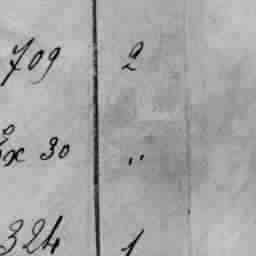 709 2
x 30 "
324 1